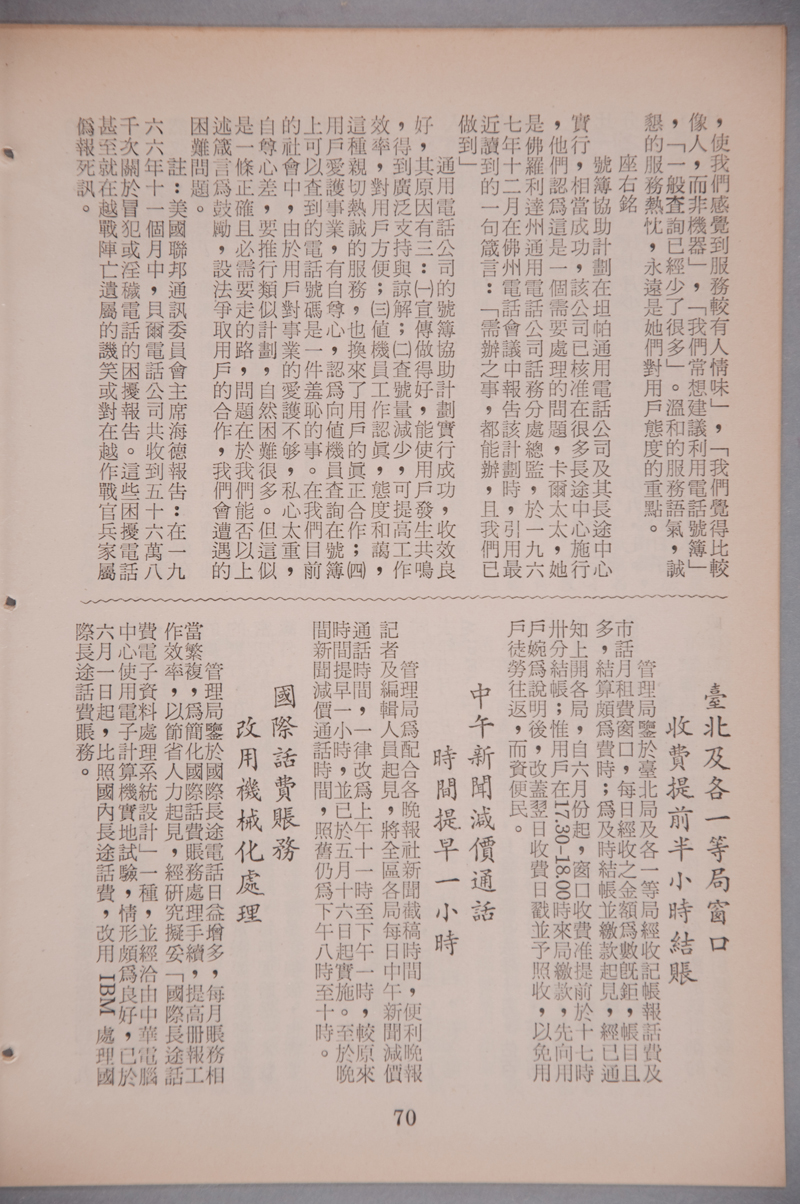 ，使我們感覺到服務較有人情味」，「我們覺得比較
像人，而非機器」，「我們常想建議利用電話號簿」
，「一般查詢已經少了很多」。溫和的服務語氣，誠
懇的服務熱忱，永遠是她們對用戶態度的重點。
座右銘
號簿協助計劃在坦帕通用電話公司及其長途中心
實行，相當成功，該公司已核准在很多長途中心施行
，他們認爲這是一個需要處理的問題，卡爾太太，她
是佛羅利達州通用電話公司話務分處總監，於一九六
七年十二月在佛州電話會議中報告該計劃時，引用最
近讀到的一句箴言：「需辦之事，都能辦，且我們已
做到」
通用電話公司的號簿協助計劃實行成功，收效良
好，其原因有三：㈠宣傳做得好，能使用戶發生共鳴
，得到廣泛支持與諒解；㈡查號量減少，可提高工作
效率，對用戶方便；㈢値機員工作認眞，態度和藹，
這種親切熱誠的服務，也換來了用戶的眞正合作；㈣
用戶愛護事業，有自尊心，認爲向値機員查詢在號簿
上可以查到的電話號碼是一件羞恥的事。在我們目前
的社會中，由於用戶對事業的愛護不够，私心太重，
自尊心差，要推行類似計劃，自然困難很多。但這似
是一條正確且必需要走的路，問題在於我們能否以上
述箴言爲鼓勵，設法爭取用戶的合作，我們會遭遇的
困難問題。
註：美國聯邦通訊委員會主席海德報告：在一九
六六年十一個月中，貝爾電話公司共收到五十六萬八
千次關於冒犯或淫穢電話的困擾報告。這些困擾電話
甚至就在越戰陣亡遺屬的譏笑或對在越作戰官兵家屬
僞報死訊。
臺北及各一等局窗口
收費提前半小時結賬
管理局鑒於臺北局及各一等局經收記帳報話費及
市話月租費窗口，每日經收之金額爲數旣鉅，帳目且
多，結算頗爲費時；爲及時結帳並繳款起見，經已通
知上開各局，自六月份起，窗口收費准提前於十七時
卅分結帳；惟用戶在17.30-18.00時來局繳款，先向用
戶婉爲說明後，改蓋翌日收費日戳並予照收，以免用
戶徒勞往返，而資便民。
中午新聞減價通話
時間提早一小時
管理局爲配合各晚報社新聞截稿時間，便利晚報
記者及編輯人員起見，將全區各局每日中午新聞減價
通話時間，一律改爲上午十一時至下午一時，較原來
時間提早一小時，並已於五月十六日起實施。至於晚
間新聞減價通話時間，照舊仍爲下午八時至十時。
國際話費賬務
改用機械化處理
管理局鑒於國際長途電話日益增多，每月賬務相
當繁複，爲簡化國際話費賬務處理手續，提高册報工
作效率，以節省人力起見，經硏究擬妥「國際長途話
費電子資料處理系統設計」一種，並經洽由中華電腦
中心使用電子計算機實地試驗，情形頗爲良好，已於
六月一日起，比照國內長途話費，改用 IBM 處理國
際長途話費賬務。
70